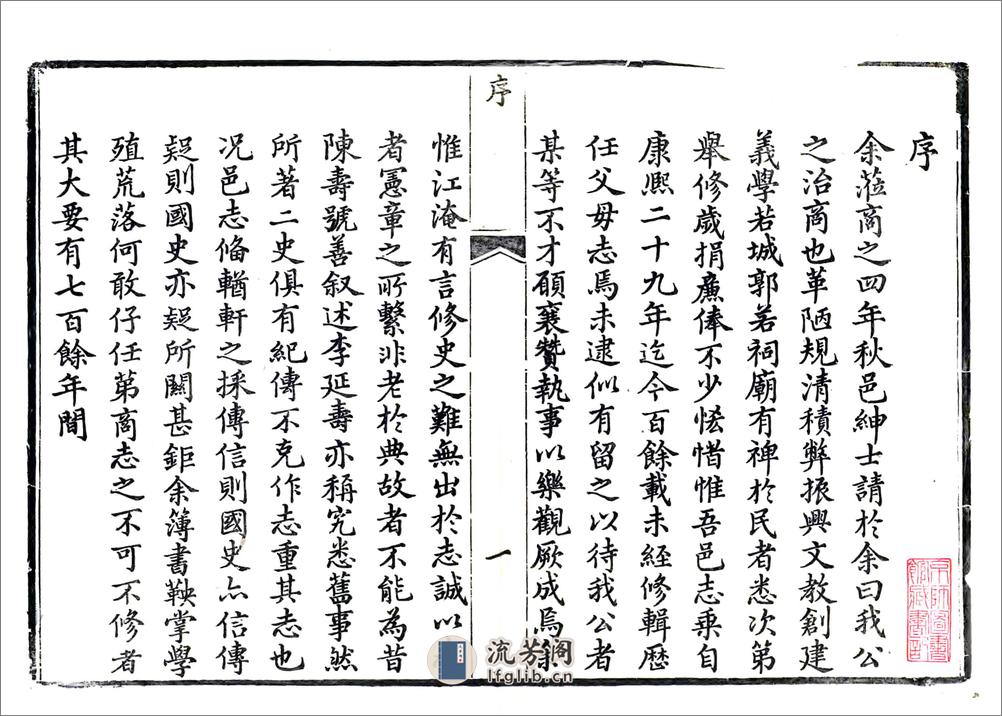 序
余蒞商之四年秋邑紳士請於余曰我公
之治商也革陋規清積弊振興文教創建
義學若城郭若祠廟有裨於民者悉次第
舉修歲捐廉俸不少恡惜惟吾邑志乘自
康熙二十九年迄今百餘載未經修輯歷
任父毋志焉未逮似有留之以待我公者
某等不才願襄贊執事以樂觀厥成焉余
序
一
惟江淹有言修史之難無出於志誠以
者憲章之所繫非老於典故者不能為昔
陳壽號善叙述李延壽亦稱究悉舊事然
所著二史俱有紀傳不克作志重其志也
况邑志備輶軒之採傳信則國史亦信傳
疑則國史亦疑所關甚鉅余簿書鞅掌學
殖荒落何敢仔任第商志之不可不修者
其大要有七百餘年間
京師圖書
館藏書記
流芳阁
lfglib.cn